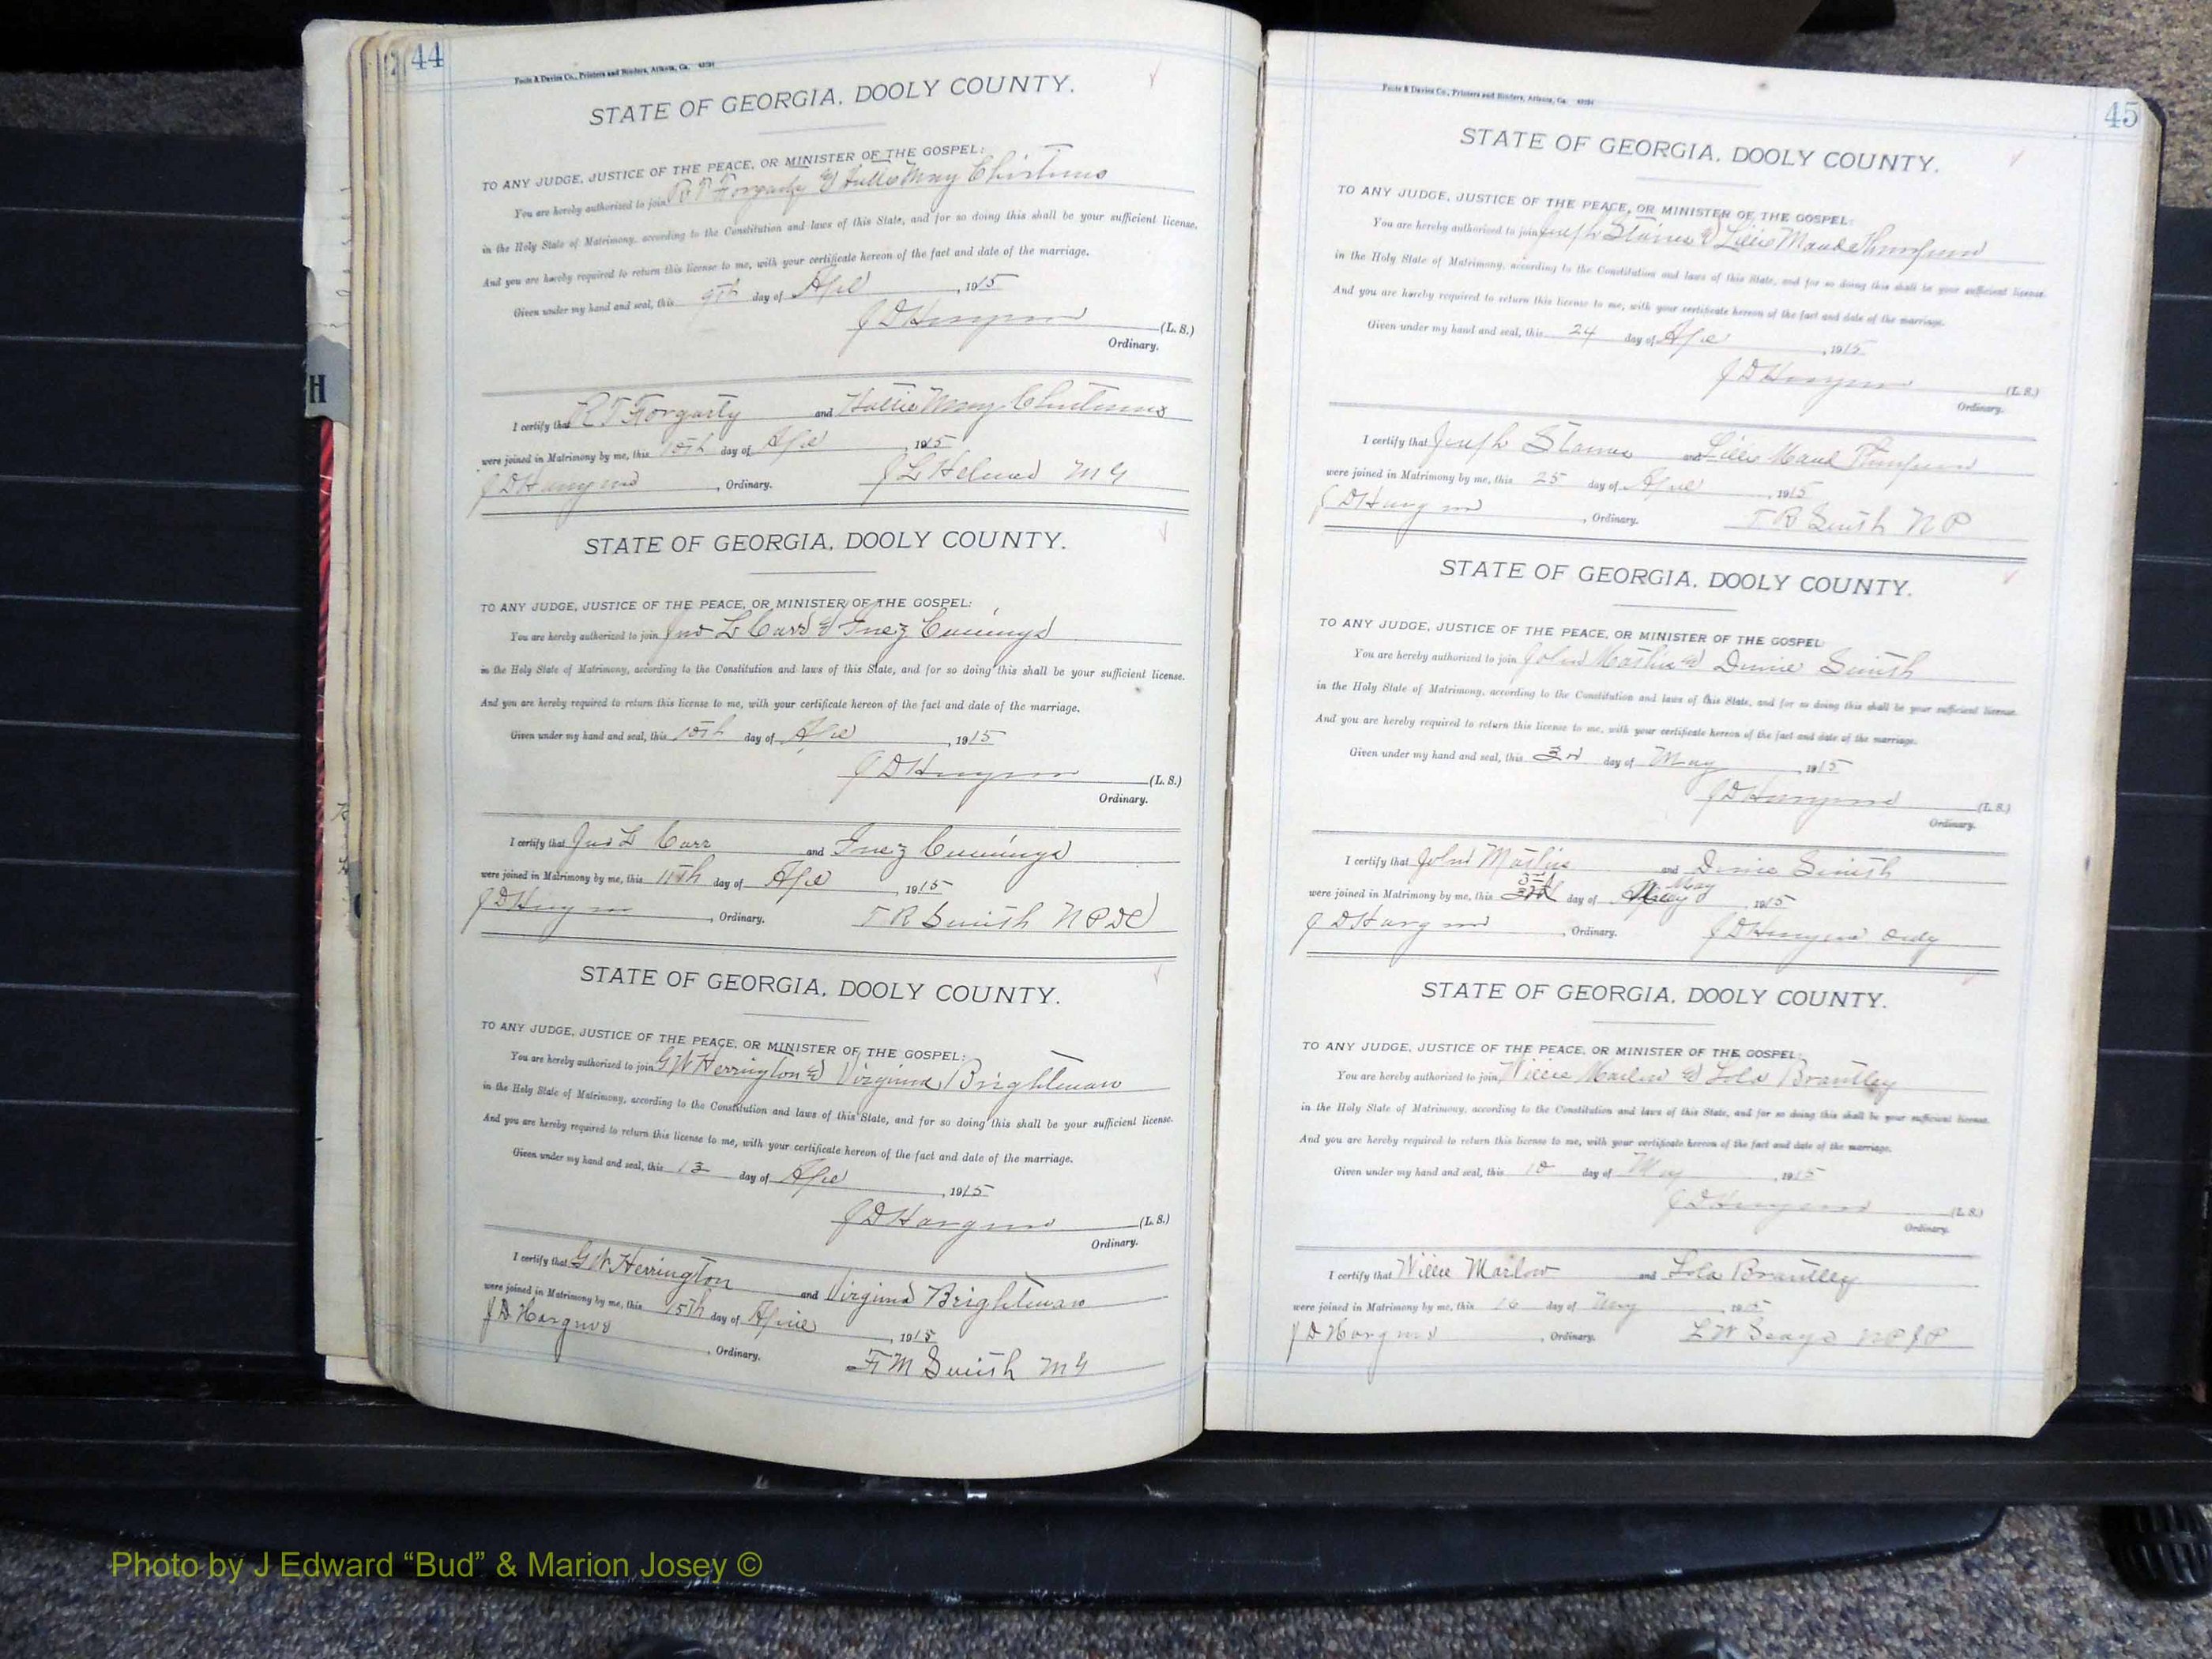 44
Foote & Davies Co., Printers and Binders, Atlanta, Ga. 43794
STATE OF GEORGIA, DOOLY COUNTY.
TO ANY JUDGE, JUSTICE OF THE PEACE, OR MINISTER OF THE GOSPEL:
You are hereby authorized to join R T Forgarty & Hattie May
in the Holy State of Matrimony, according to the Constitution and laws of this State, and for so doing this shall be your sufficient license.
And you are hereby required to return this license to me, with your certificate hereon of the fact and date of the marriage.
Given under my hand and seal, this 9th day of Apl , 1915
J D Hargrove (L. S.)
Ordinary.
I certify that R T Forgarty and May
were joined in Matrimony by me, this 10th day of Apl , 1915
J D Hargrove , Ordinary. J L M G
STATE OF GEORGIA, DOOLY COUNTY.
TO ANY JUDGE, JUSTICE OF THE PEACE, OR MINISTER OF THE GOSPEL:
You are hereby authorized to join Jno L Carr & Inez Cummings
in the Holy State of Matrimony, according to the Constitution and laws of this State, and for so doing this shall be your sufficient license.
And you are hereby required to return this license to me, with your certificate hereon of the fact and date of the marriage.
Given under my hand and seal, this 10th day of Apl , 1915
J D Hargrove (L. S.)
Ordinary.
I certify that Jno L Carr and Inez Cummings
were joined in Matrimony by me, this 11th day of Apl , 1915
J D Hargrove , Ordinary. T R Smith N P D C
STATE OF GEORGIA, DOOLY COUNTY.
TO ANY JUDGE, JUSTICE OF THE PEACE, OR MINISTER OF THE GOSPEL:
You are hereby authorized to join G W Herrington & Virginia Brightman
in the Holy State of Matrimony, according to the Constitution and laws of this State, and for so doing this shall be your sufficient license.
And you are hereby required to return this license to me, with your certificate hereon of the fact and date of the marriage.
Given under my hand and seal, this 13 day of Apl , 1915
J D Hargrove (L. S.)
Ordinary.
I certify that G W Herrington and Virginia Brightman
were joined in Matrimony by me, this 15th day of April , 1915
J D Hargrove , Ordinary. F M Smith M G
45
Foote & Davies Co., Printers and Binders, Atlanta, Ga. 43794
STATE OF GEORGIA, DOOLY COUNTY.
TO ANY JUDGE, JUSTICE OF THE PEACE, OR MINISTER OF THE GOSPEL:
You are hereby authorized to join Joseph & Lillie Maude Thompson
in the Holy State of Matrimony, according to the Constitution and laws of this State, and for so doing this shall be your sufficient license.
And you are hereby required to return this license to me, with your certificate hereon of the fact and date of the marriage.
Given under my hand and seal, this 24 day of Apl , 1915
J D Hargrove (L. S.)
Ordinary.
I certify that Joseph and Lillie Maud Thompson
were joined in Matrimony by me, this 25 day of April , 1915
J D Hargrove , Ordinary. T R Smith N P
STATE OF GEORGIA, DOOLY COUNTY.
TO ANY JUDGE, JUSTICE OF THE PEACE, OR MINISTER OF THE GOSPEL:
You are hereby authorized to join John & Smith
in the Holy State of Matrimony, according to the Constitution and laws of this State, and for so doing this shall be your sufficient license.
And you are hereby required to return this license to me, with your certificate hereon of the fact and date of the marriage.
Given under my hand and seal, this 3rd day of May , 1915
J D Hargrove (L. S.)
Ordinary.
I certify that John and Smith
were joined in Matrimony by me, this 3rd day of May , 1915
J D Hargrove , Ordinary. J D Hargrove Ordy
STATE OF GEORGIA, DOOLY COUNTY.
TO ANY JUDGE, JUSTICE OF THE PEACE, OR MINISTER OF THE GOSPEL:
You are hereby authorized to join Willie Marlow & Lola Brantley
in the Holy State of Matrimony, according to the Constitution and laws of this State, and for so doing this shall be your sufficient license.
And you are hereby required to return this license to me, with your certificate hereon of the fact and date of the marriage.
Given under my hand and seal, this 10 day of May , 1915
J D Hargrove (L. S.)
Ordinary.
I certify that Willie Marlow and Lola Brantley
were joined in Matrimony by me, this 16 day of May , 1915
J D Hargrove , Ordinary. L W Seays N P J P
H
Photo by J Edward “Bud” & Marion Josey ©